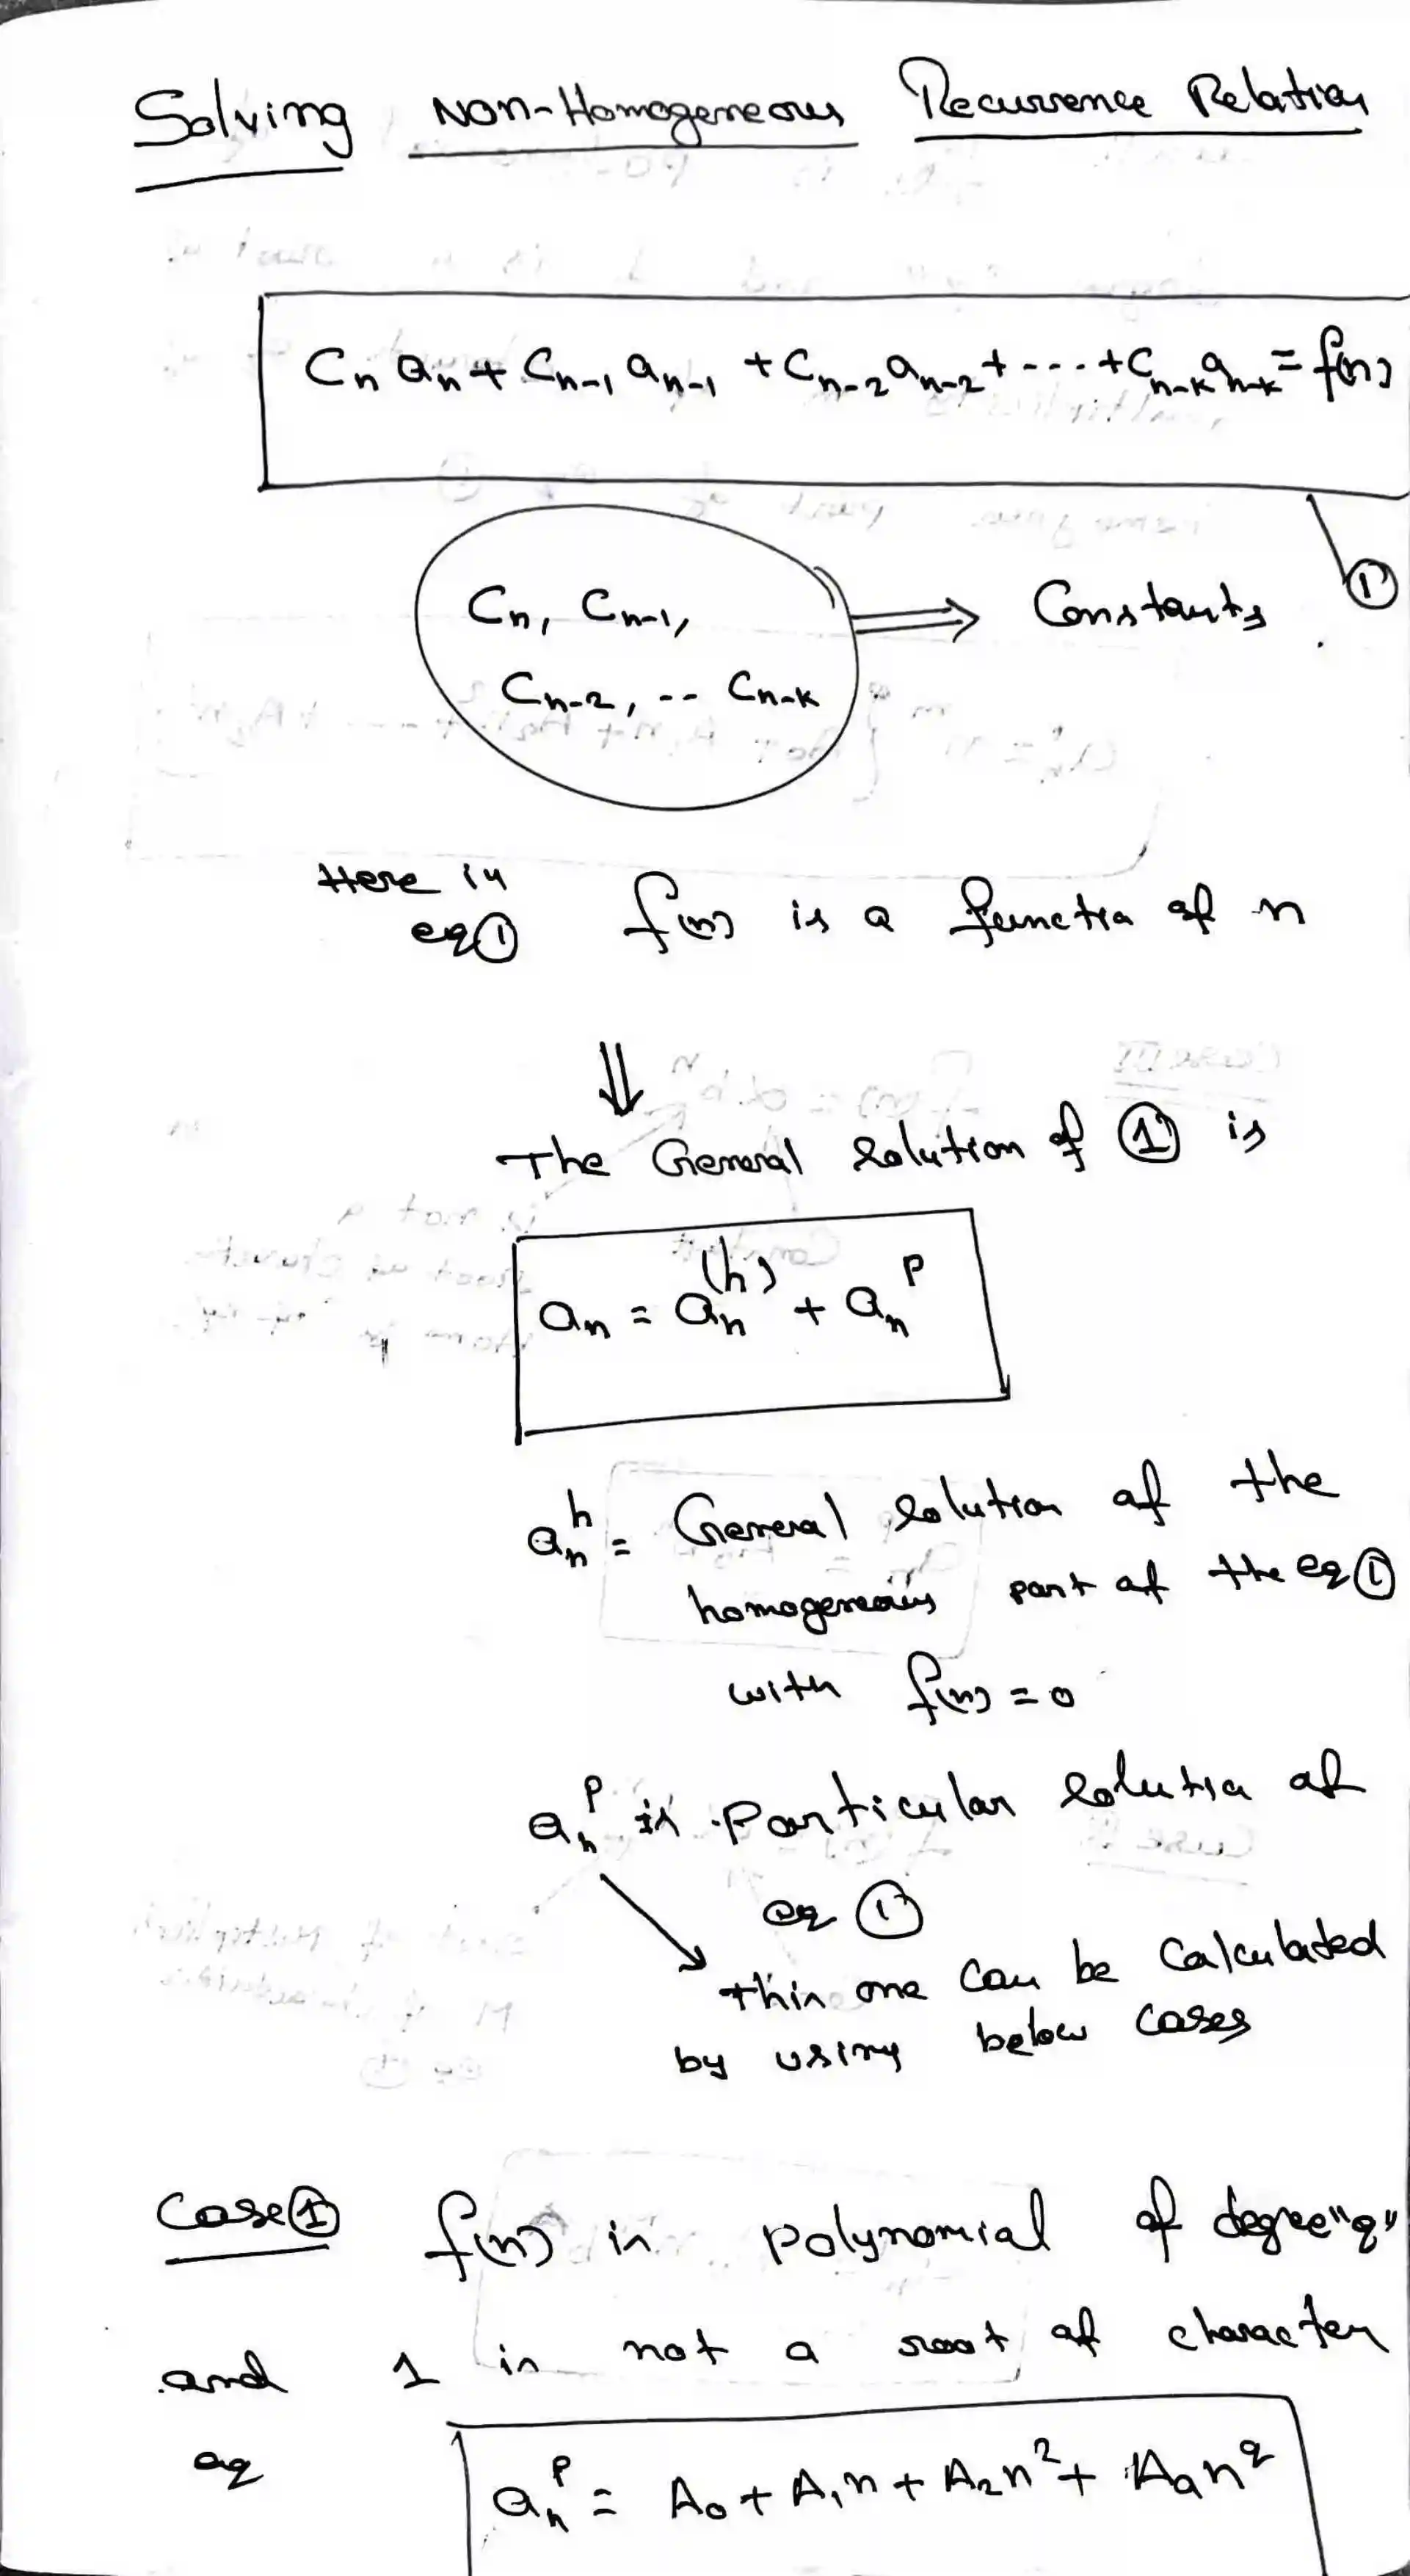 Solving Non-Homogeneous Recurrence Relation
Cn an + Cn-1 an-1 + Cn-2 an-2 + ---- + Cn-k an-k = f(n)
①
Cn, Cn-1, ⇒ Constants
Cn-2, -- Cn-k
Here in
eq ① f(n) is a function of n
⇓
The General solution of ① is
an = an^(h) + an^P
an^h = General solution of the
homogeneous part of the eq ①
with f(n) = 0
an^P is particular solution of
eq ①
this one can be calculated
by using below cases
Case ① f(n) is polynomial of degree "q"
and 1 is not a root of character
eq
an^P = A0 + A1n + A2n² + Aqn^q